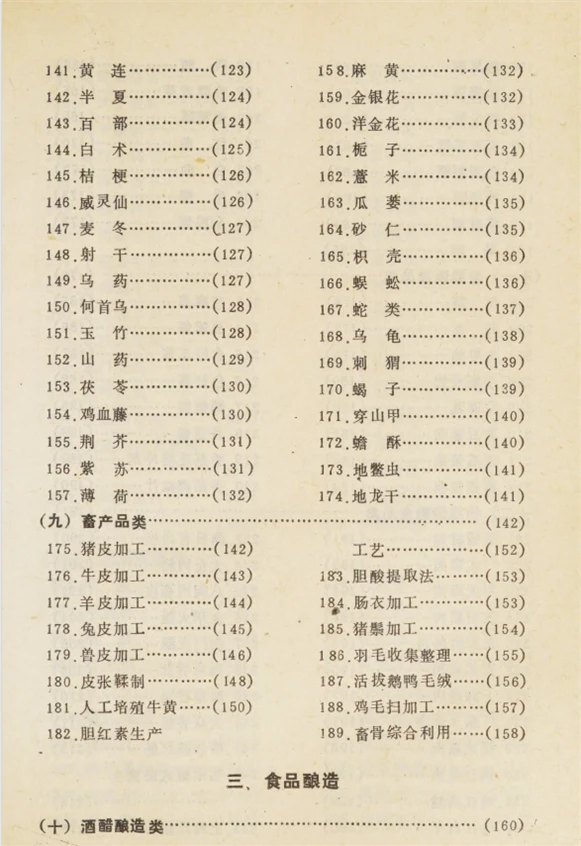 141.黄 连………………(123)
142.半 夏………………(124)
143.百 部………………(124)
144.白 术………………(125)
145.桔 梗………………(126)
146.威灵仙………………(126)
147.麦 冬………………(127)
148.射 干………………(127)
149.乌 药………………(127)
150.何首乌………………(128)
151.玉 竹………………(128)
152.山 药………………(129)
153.茯 苓………………(130)
154.鸡血藤………………(130)
155.荆 芥………………(131)
156.紫 苏………………(131)
157.薄 荷………………(132)
158.麻 黄………………(132)
159.金银花………………(132)
160.洋金花………………(133)
161.栀 子………………(134)
162.薏 米………………(134)
163.瓜 蒌………………(135)
164.砂 仁………………(135)
165.枳 壳………………(136)
166.蜈 蚣………………(136)
167.蛇 类………………(137)
168.乌 龟………………(138)
169.刺 猬………………(139)
170.蝎 子………………(139)
171.穿山甲………………(140)
172.蟾 酥………………(140)
173.地鳖虫………………(141)
174.地龙干………………(141)
(九) 畜产品类………………………………………………(142)
175.猪皮加工…………(142)
176.牛皮加工…………(143)
177.羊皮加工…………(144)
178.兔皮加工…………(145)
179.兽皮加工…………(146)
180.皮张鞣制…………(148)
181.人工培殖牛黄……(150)
182.胆红素生产
工艺…………………(152)
183.胆酸提取法………(153)
184.肠衣加工…………(153)
185.猪鬃加工…………(154)
186.羽毛收集整理……(155)
187.活拔鹅鸭毛绒……(156)
188.鸡毛扫加工………(157)
189.畜骨综合利用……(158)
三、食品酿造
(十) 酒醋酿造类……………………………………………(160)